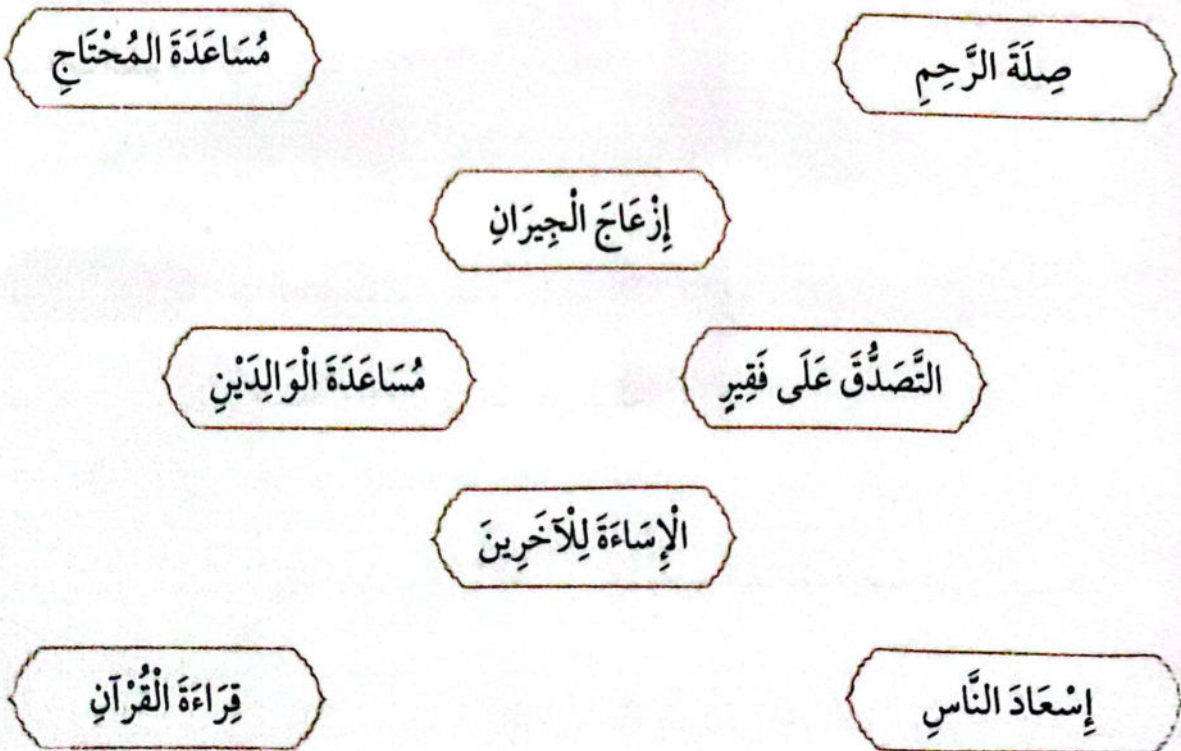 صِلَةَ الرَّحِمِ
مُسَاعَدَةَ المُحْتَاجِ
إِزْعَاجَ الْجِيرَانِ
التَّصَدُّقَ عَلَى فَقِيرٍ
مُسَاعَدَةَ الْوَالِدَيْنِ
الْإِسَاءَةَ لِلْآخَرِينَ
إِسْعَادَ النَّاسِ
قِرَاءَةَ الْقُرْآنِ